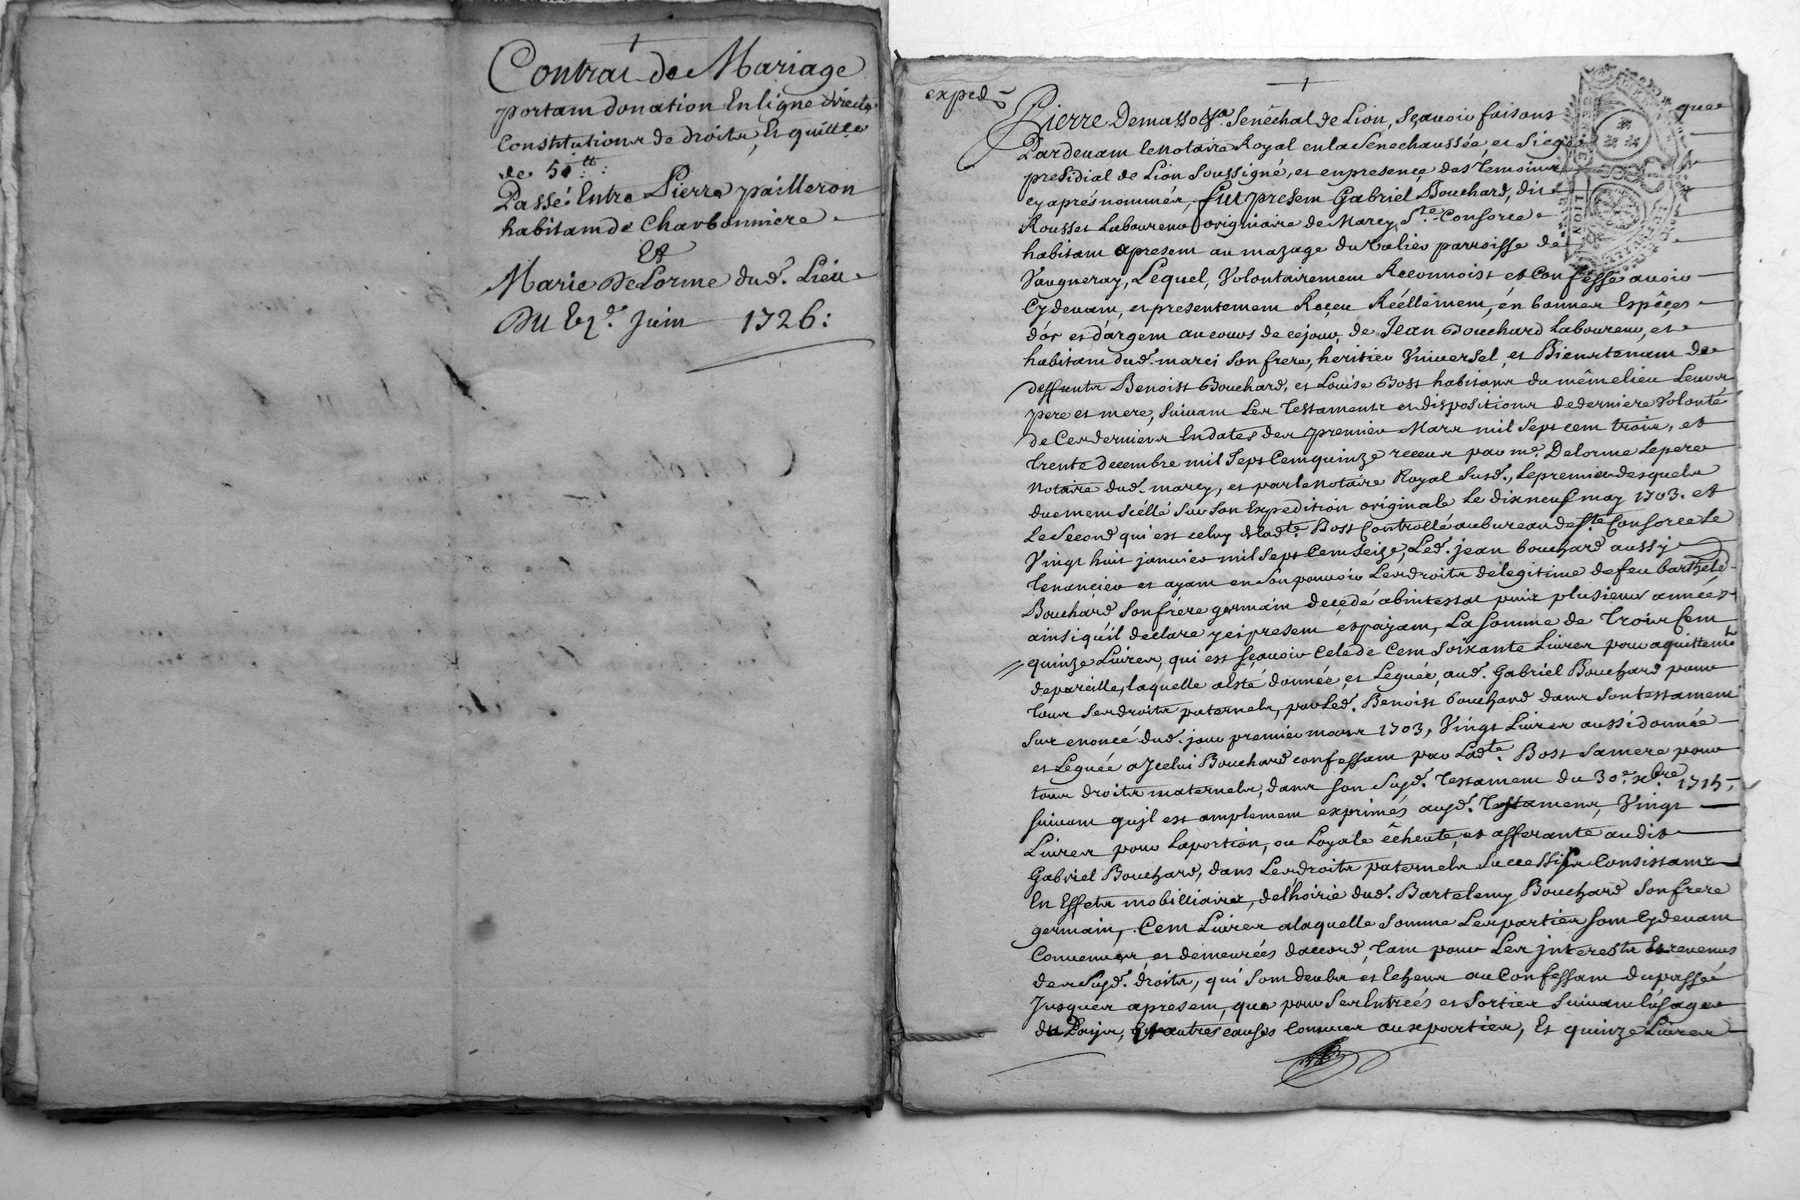 Contrat de Mariage
portam donation En ligne directe
Constitutions de droits, Et quitt.ce
de 50tt:
Passé Entre Pierre pailleron
habitam de Charbonniere
Et
Marie DeLorme dud. Lieu
Du juin 1726:
exped
Pierre Demasso &a Senéchal de Lion, Sçavoir faisons que
Pardevam le Notaire Royal en la Senechaussée, et Siege
presidial de Lion Soussigné, et en presence des Temoins
cy aprés nommés, fut presem Gabriel Bouchard, dit
Rousset Laboureur originaire de Marcy Ste. Consorce
habitam apresem au mazage du valier parroisse de
Vaugneray, Lequel, Volontairemem Reconnoist et Confesse avoir
Cydevam, et presentemem Reçeu Réellemem, én bonnes Espéçes
d'or et d'argem au cours de cejour, de Jean Bouchard Laboureur, et
habitam dud. marci Son frere, heritier Vniversel, et Bientenam de
deffunts Benoist Bouchard, et Louise Bost habitans du même lieu Leurs
pere et mere, Suivam Les Testaments et dispositions de derniere Volonté
de Ces derniers En dates des premier Mars mil Sept cem trois, et
Trente decembre mil Sept Cem quinze receus par me. Delorme Le pere
Notaire dud. marcy, et par le Notaire Royal Susd., Le premier desquels
duemem Scéllé Sur Son Expedition originale Le dix neuf may 1703. et
Le Second qui est celuy de lad.te Bost Controllé au bureau de Ste Consorce Le
Vingt huit janvier mil Sept Cem Seize, Led. jean bouchard aussy
Tenancier et ayam en Son pouvoir Les droits de legitime de feu barthele
Bouchard Son frére germain deçedé abintestat puis plusieurs années
ainsi qu'il declare yci presem et payam, La Somme de Trois Cem
quinze Livres, qui est sçavoir Cele de Cem Soixante Livres pour aquittemt
de pareille, laquelle a esté donnée, et Leguée, aud. Gabriel Bouchard pour
Tous Ses droits paternels, par Led. Benoist bouchard dans Son testamem
Sur enoncé dud. jour premier mars 1703, Vingt Livres aussi donnée
et Leguée a Jcelui Bouchard confessam par Lad.te Bost Sa mere pour
tous droits maternels, dans son Susd. Testamem du 30e. xbre 1715,
suivam qu'il est amplemem exprimés ausd. Testamens, Vingt
Livres pour La portion, ou Loyale écheute, et afferante audit
Gabriel Bouchard, dans Les droits paternels Successifs Consistants
En Effets mobilliaires, de l'hoirie dud. Bartelemy Bouchard Son frere
germain, Cem Livres a laquelle Somme Les parties Som Cydevam
Convenues et demeurées d'accord, Tam pour Les jnterests Et revenus
des Susd. droits, qui Som deubs et Echeus au Confessam du passé
Jusques apresem, que pour Ses Entrées et Sorties Suivam L'usage
du Pays, Et autres causes Connues aux parties, Et quinze Livres